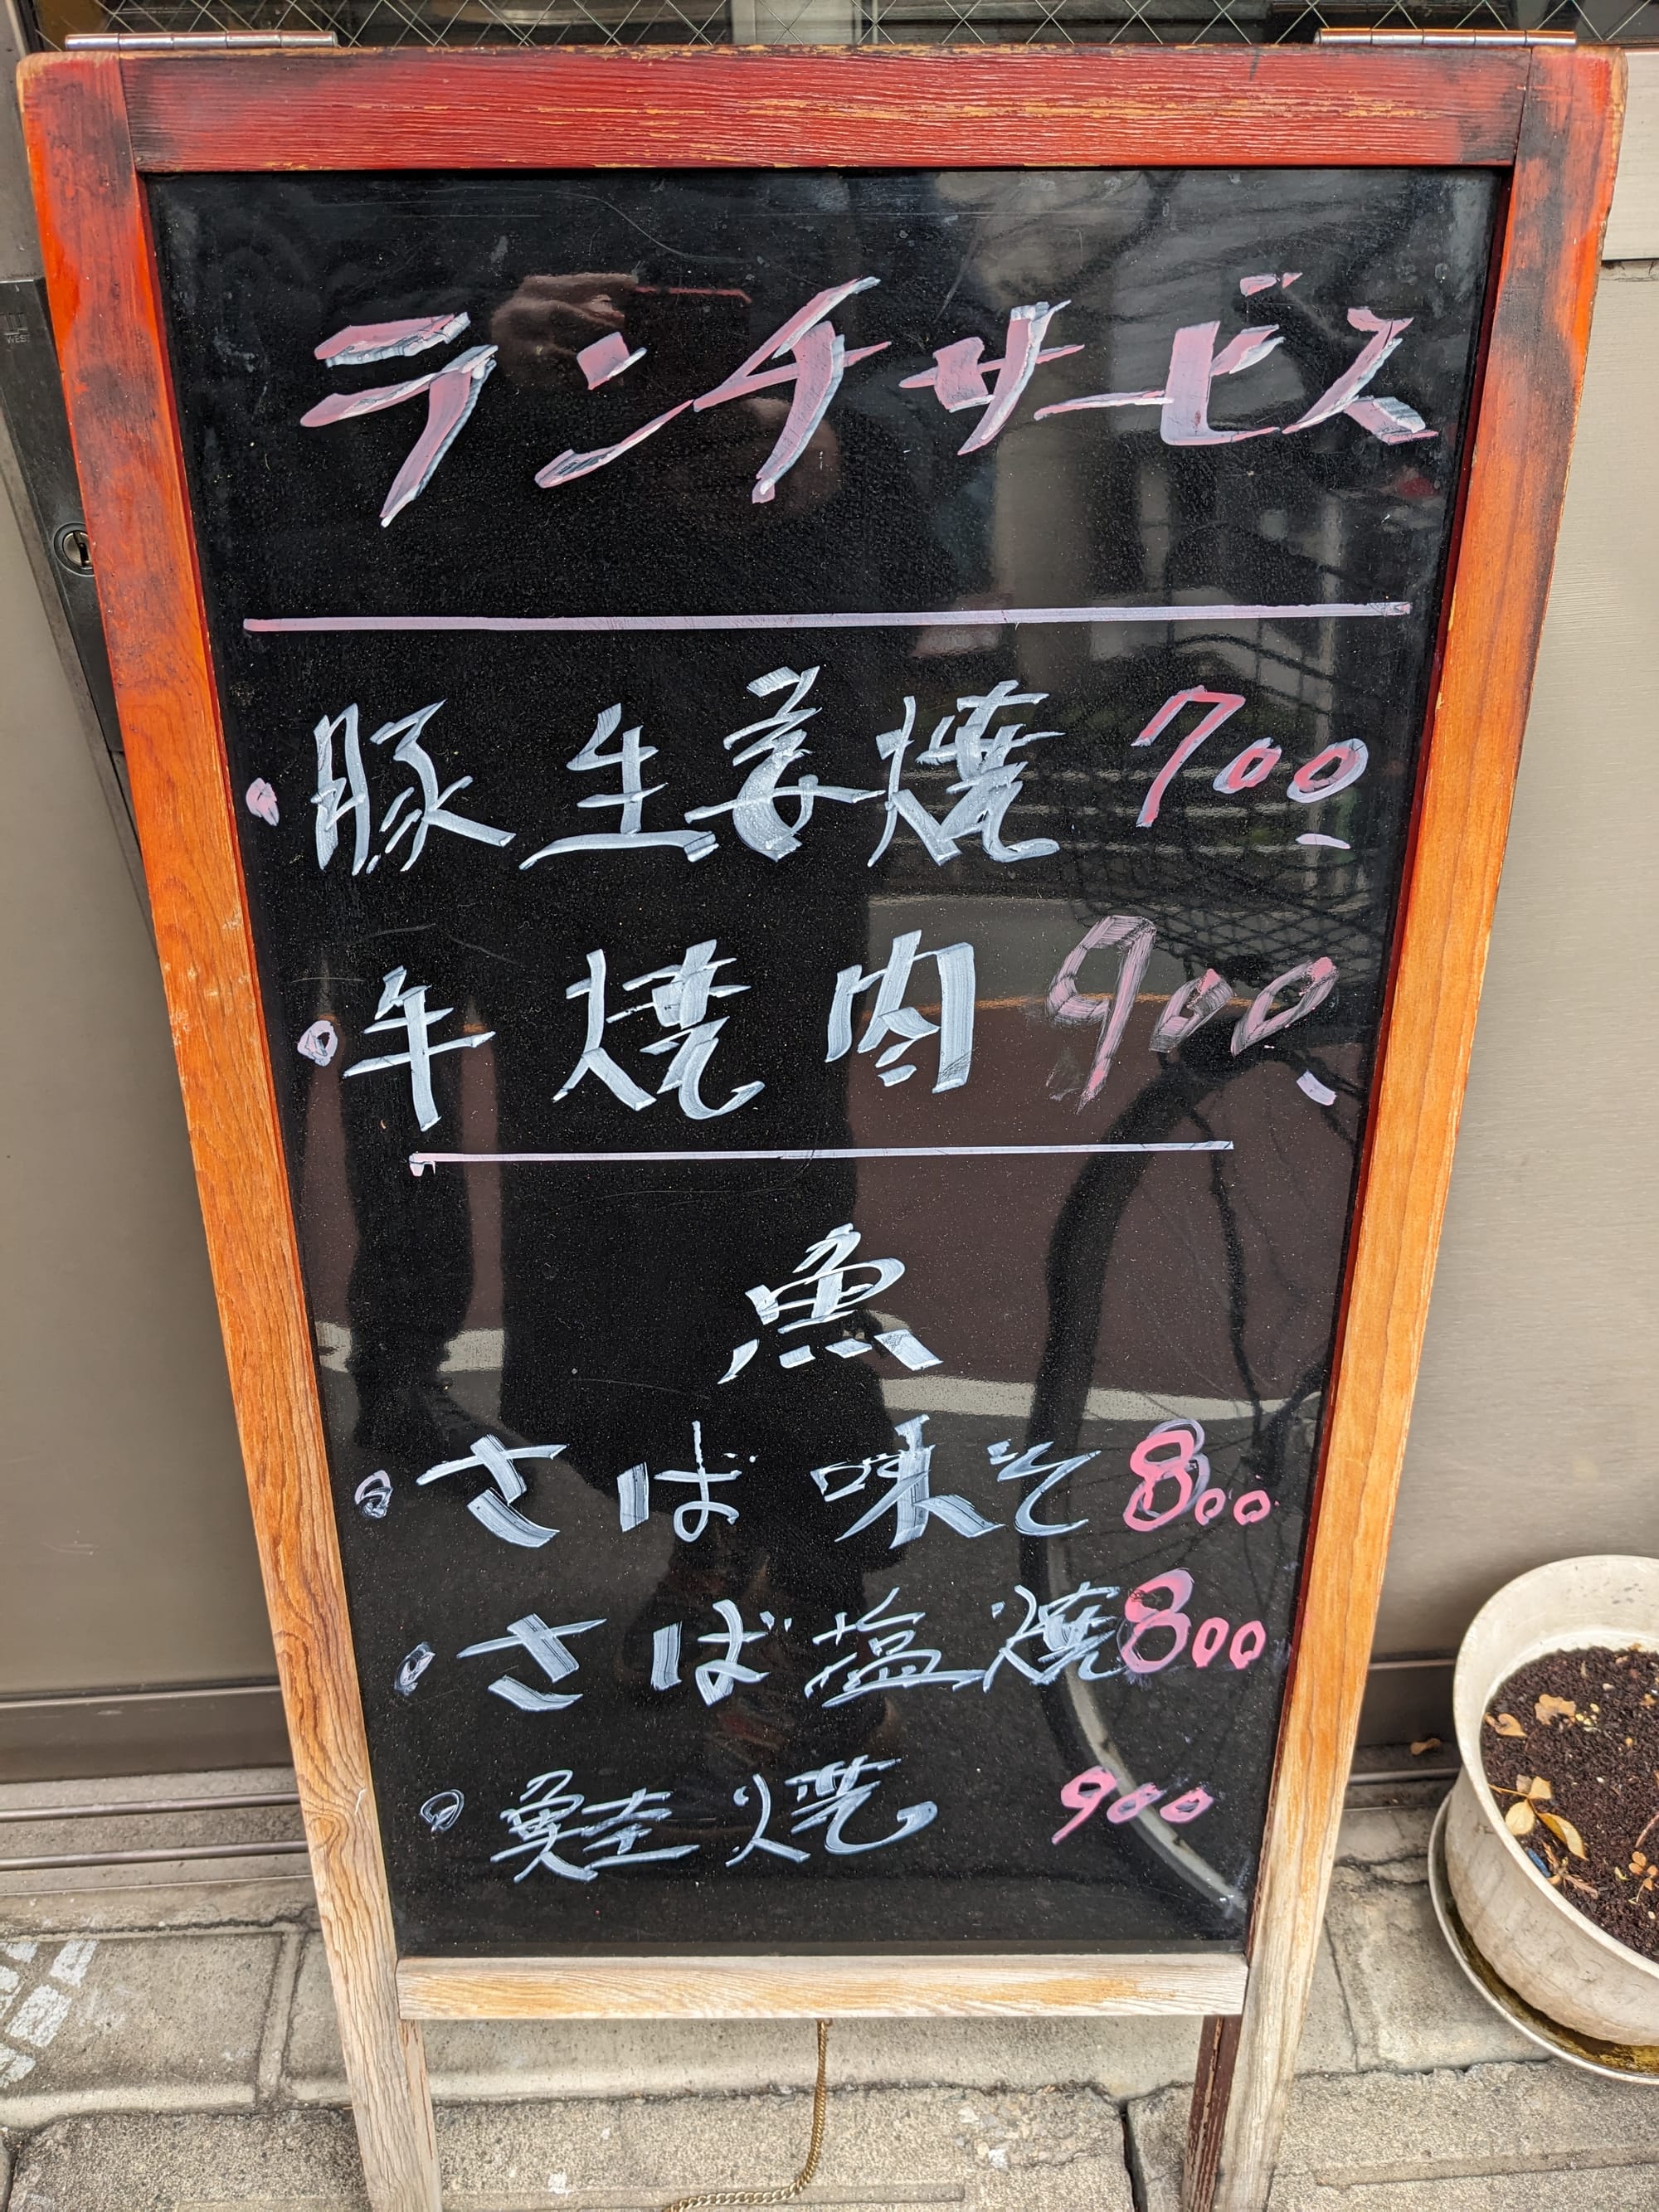 ランチサービス
・豚生姜焼 700
・牛焼肉 900
魚
・さば味そ 800
・さば塩焼 800
・鮭焼 900